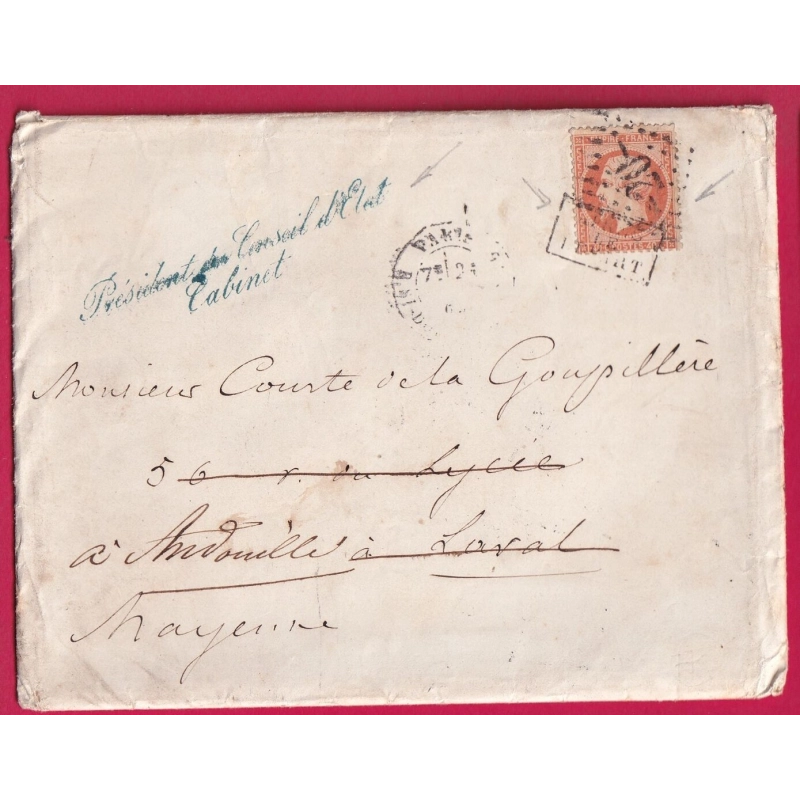 Président du Conseil d'Etat
Cabinet
PARIS
7E 24
EMPIRE FRANC
POSTES 40
Monsieur Courte de la Goupillère
56 r. du Lycée
à Andouillé à Laval
Mayenne